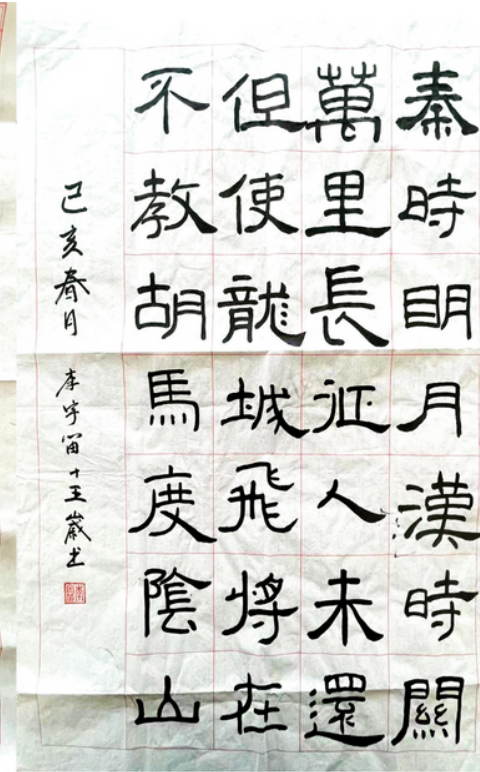 秦時眀月漢時關
萬里長征人未還
但使龍城飛將在
不教胡馬度陰山
己亥春月 李宇 十五歲书